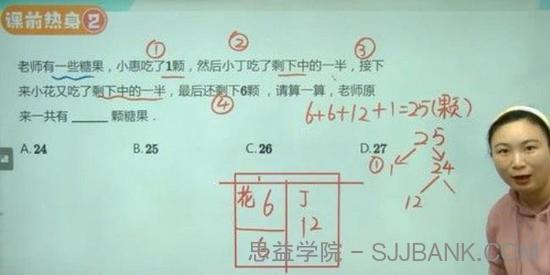 课前热身2
① ② ③
老师有一些糖果，小惠吃了1颗，然后小丁吃了剩下中的一半，接下
来小花又吃了剩下中的一半，最后还剩下6颗，请算一算，老师原
来一共有______颗糖果．
④
6+6+12+1=25(颗)
A.24 B.25 C.26 D.27
25
① 1 24
12
花 6 丁
12
6
思益学院 - SJJBANK.COM